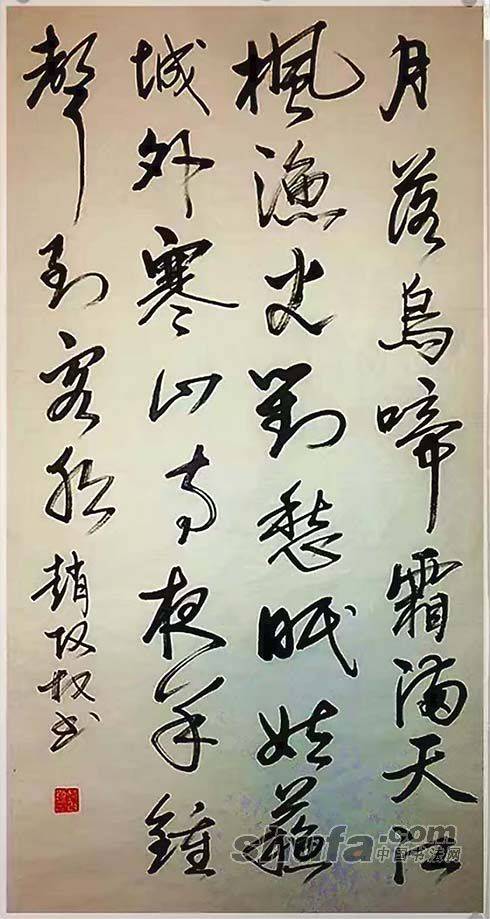 月落烏啼霜滿天江
楓漁火對愁眠姑蘇
城外寒山寺夜半鍾
聲到客船
趙书
shufa.com
中国书法网